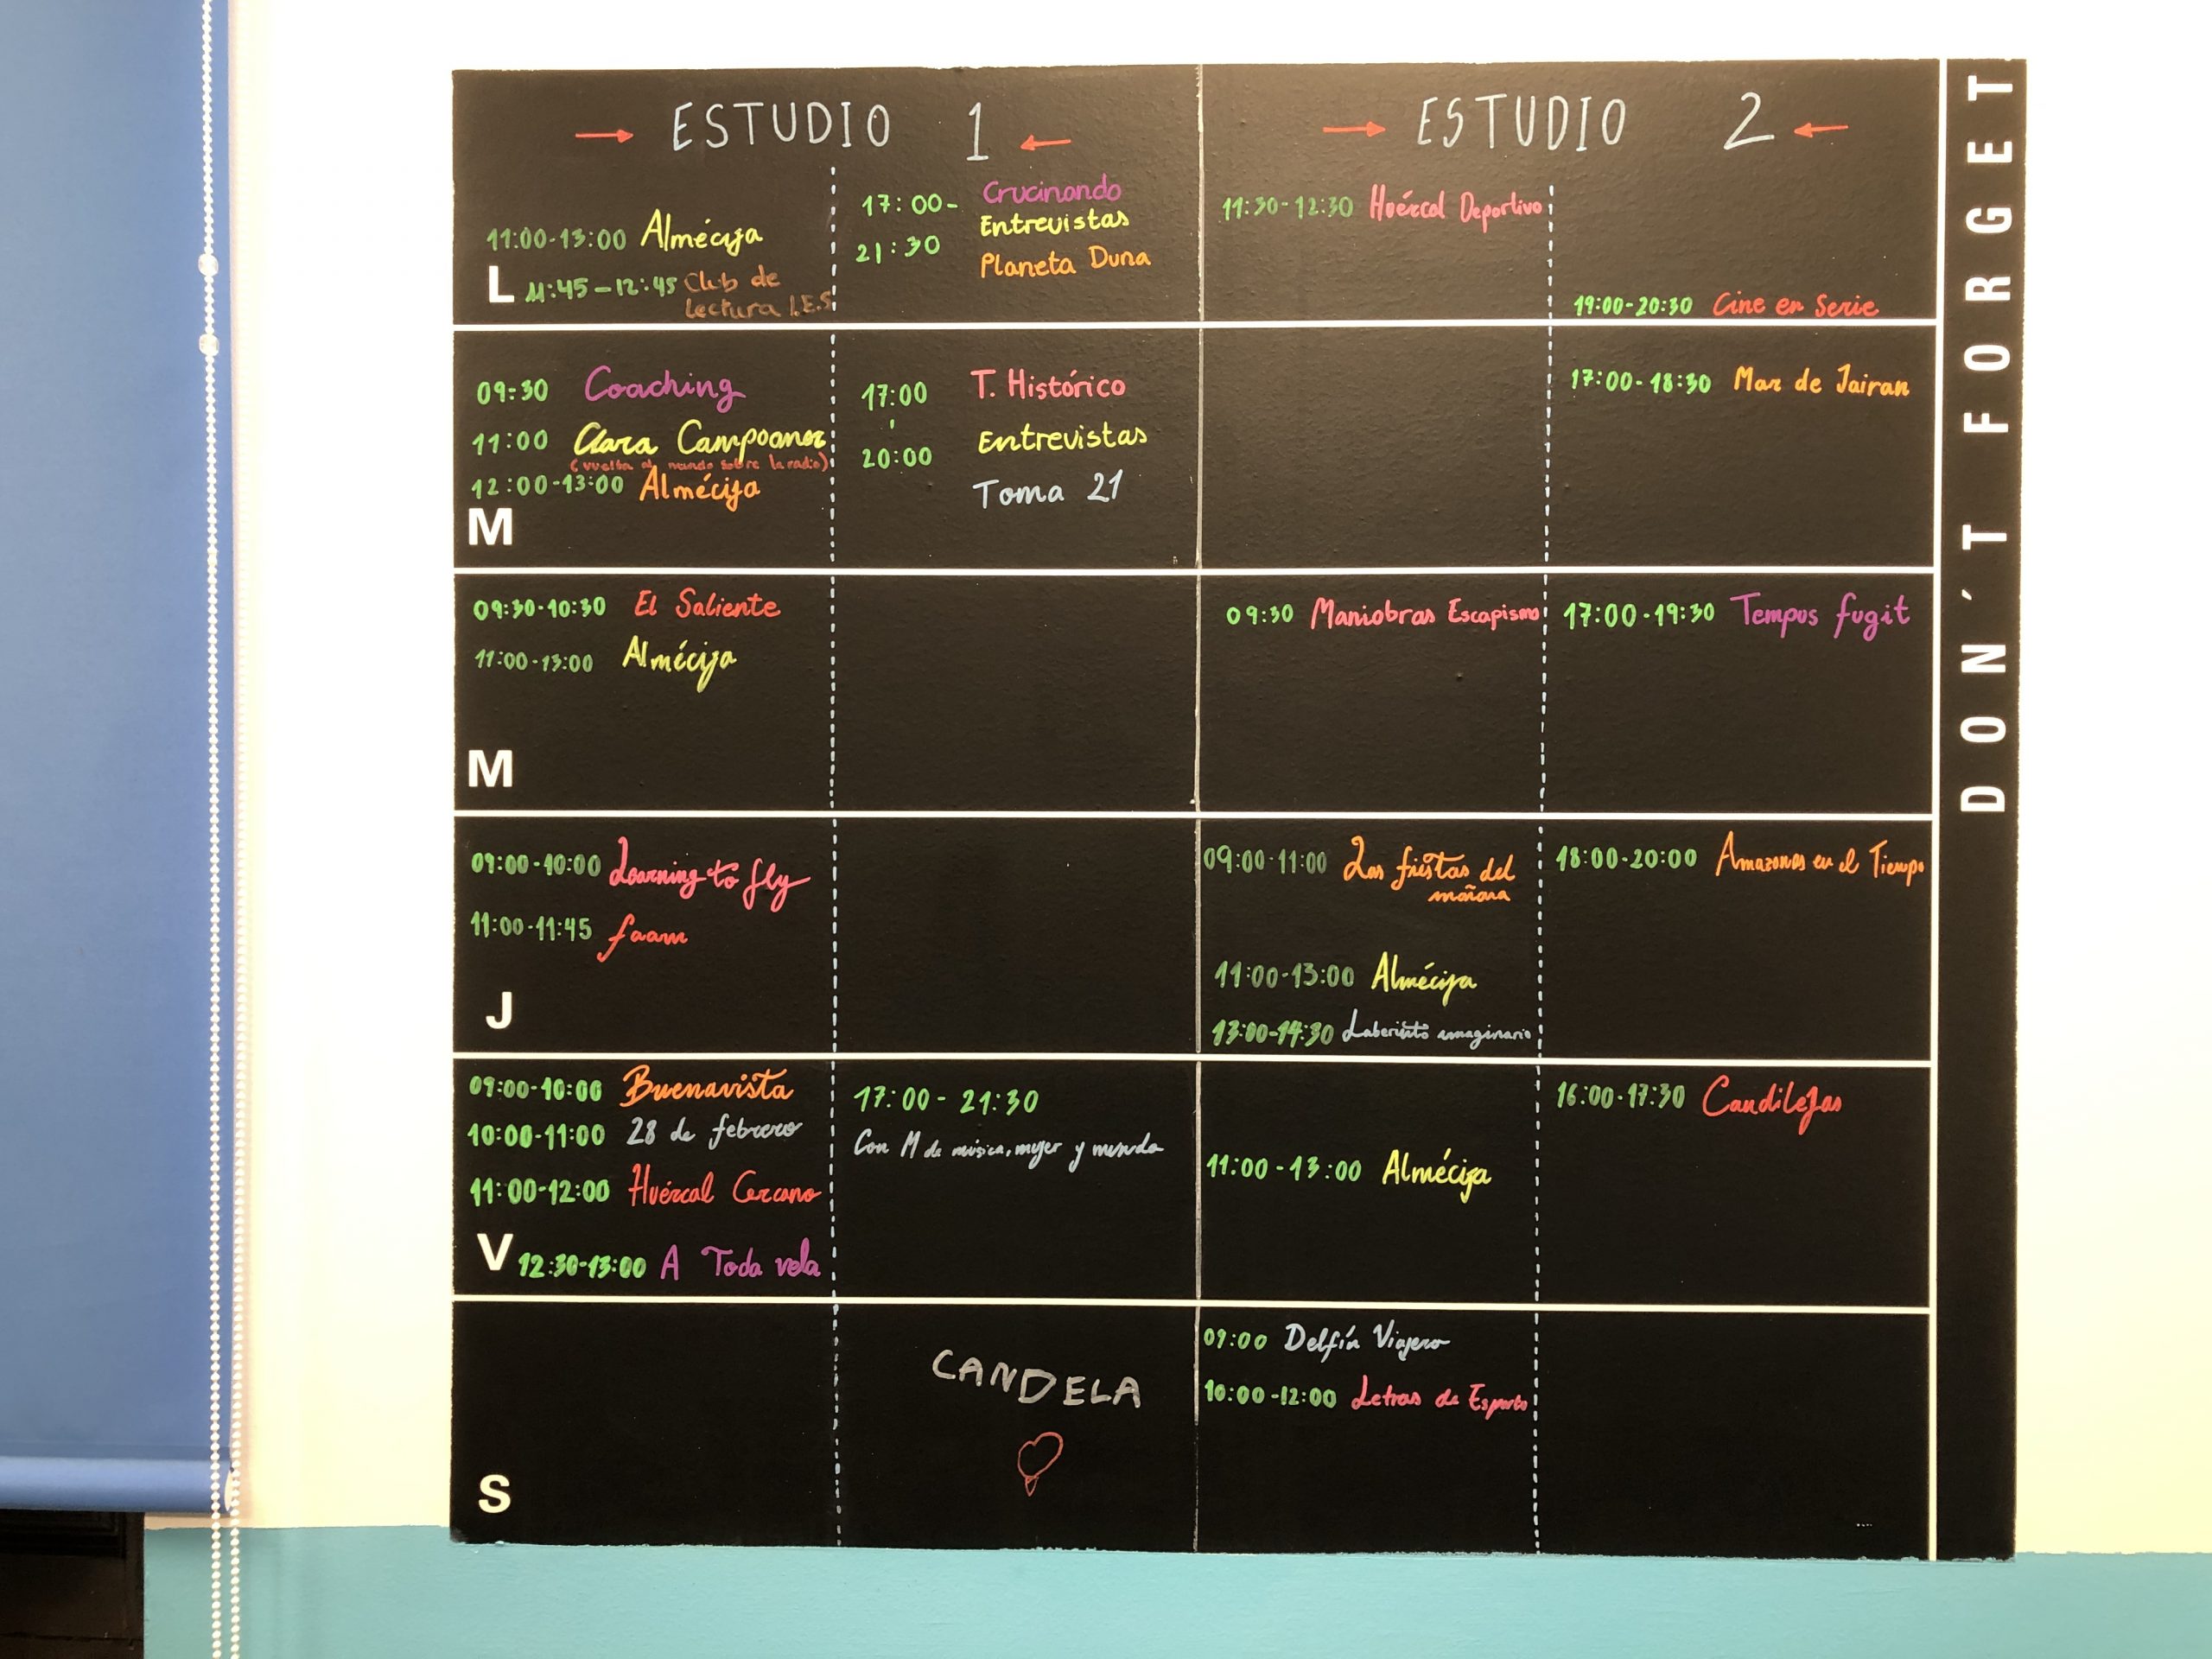 ESTUDIO 1
11:00-13:00 Almécija
L 11:45-12:45 Club de
Lectura I.E.S
17:00- Crucinando
Entrevistas
21:30
Planeta Duna
ESTUDIO 2
11:30-12:30 Huércal Deportivo
19:00-20:30 Cine en Serie
09:30 Coaching
11:00 Clara Campoamor
(vuelta al mundo sobre la radio)
12:00-13:00 Almécija
M
17:00 T. Histórico
Entrevistas
20:00
Toma 21
17:00-18:30 Mar de Jairan
09:30-10:30 El Saliente
11:00-13:00 Almécija
M
09:30 Maniobras Escapismo
17:00-19:30 Tempus fugit
09:00-10:00 Learning to fly
11:00-11:45 faam
J
09:00-11:00 Las fiestas del
mañana
11:00-13:00 Almécija
13:00-14:30 Laberinto imaginario
18:00-20:00 Amazonas en el Tiempo
09:00-10:00 Buenavista
10:00-11:00 28 de febrero
11:00-12:00 Huércal Cercano
V 12:30-13:00 A Toda vela
17:00-21:30
Con M de música, mujer y mundo
11:00-13:00 Almécija
16:00-17:30 Candilejas
S
CANDELA
09:00 Delfín Viajero
10:00-12:00 Letras de Esparto
DON´T FORGET